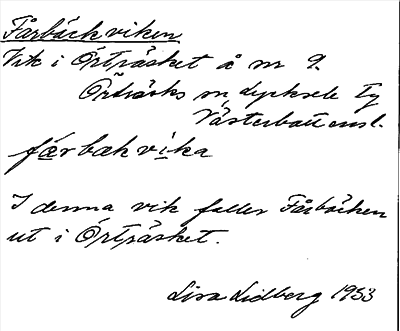 Fårbäckviken
Vik i Örträsket å m 9.
Örträsks sn, Lycksele tg
Västerbottensl.
færbækvika
I denna vik faller Fårbäcken
ut i Örträsket.
Lisa Lidberg 1953